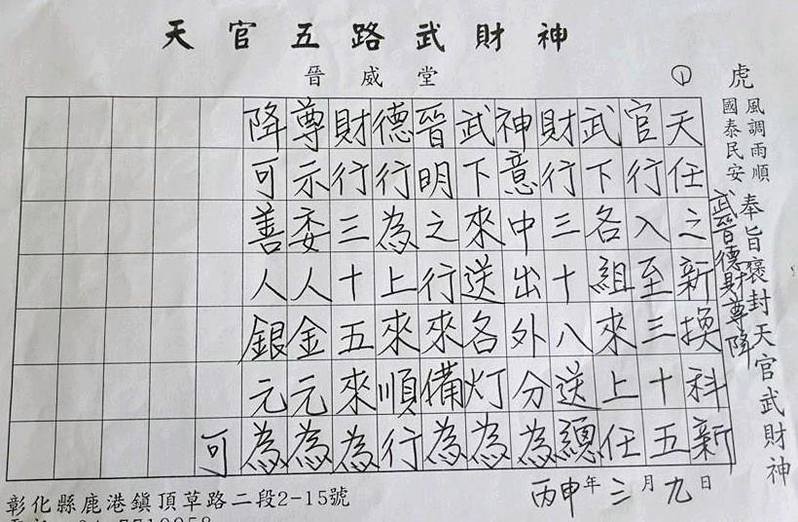 天官五路武財神
晉威堂
①
虎
風調雨順
國泰民安
奉旨褒封天官武財神
武晉德財尊降
天任之新換科新
官行入至三十五
武下各組來上任
財行三十八送總
神意中出外分為
武下來送各灯為
晉明之行來備為
德行為上來順行
財行三十五來為
尊示委人金元為
降可善人銀元為
可
丙申年三月九日
彰化縣鹿港鎮頂草路二段2-15號